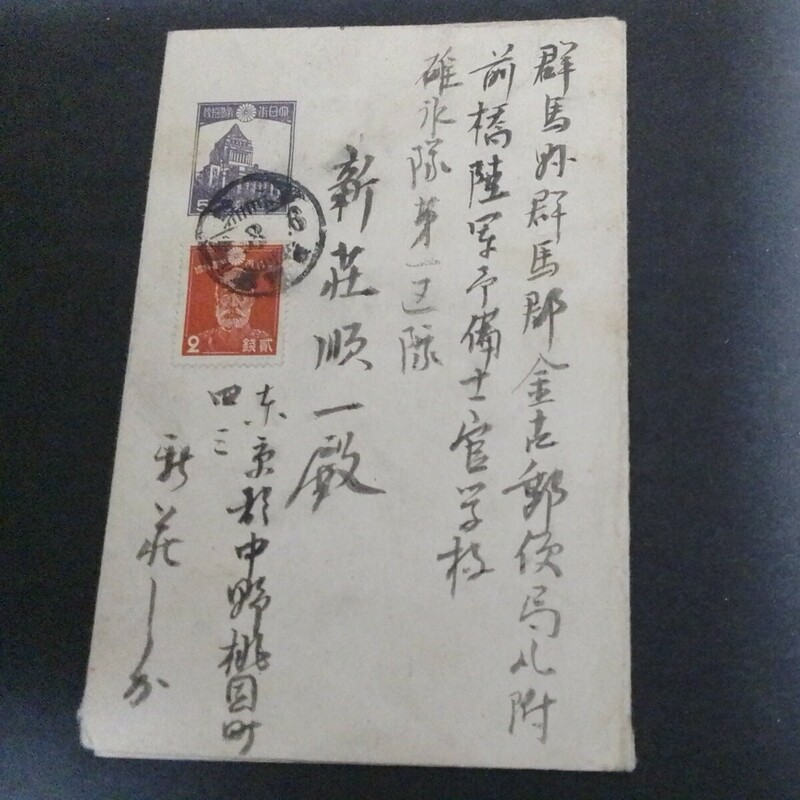 群馬縣群馬郡金古郵便局気附
前橋陸軍予備士官学校
碓氷隊第一区隊
新荘順一殿
大日本帝国郵便
5
2
貳銭
東京都中野桃園町
四三
新荘しか